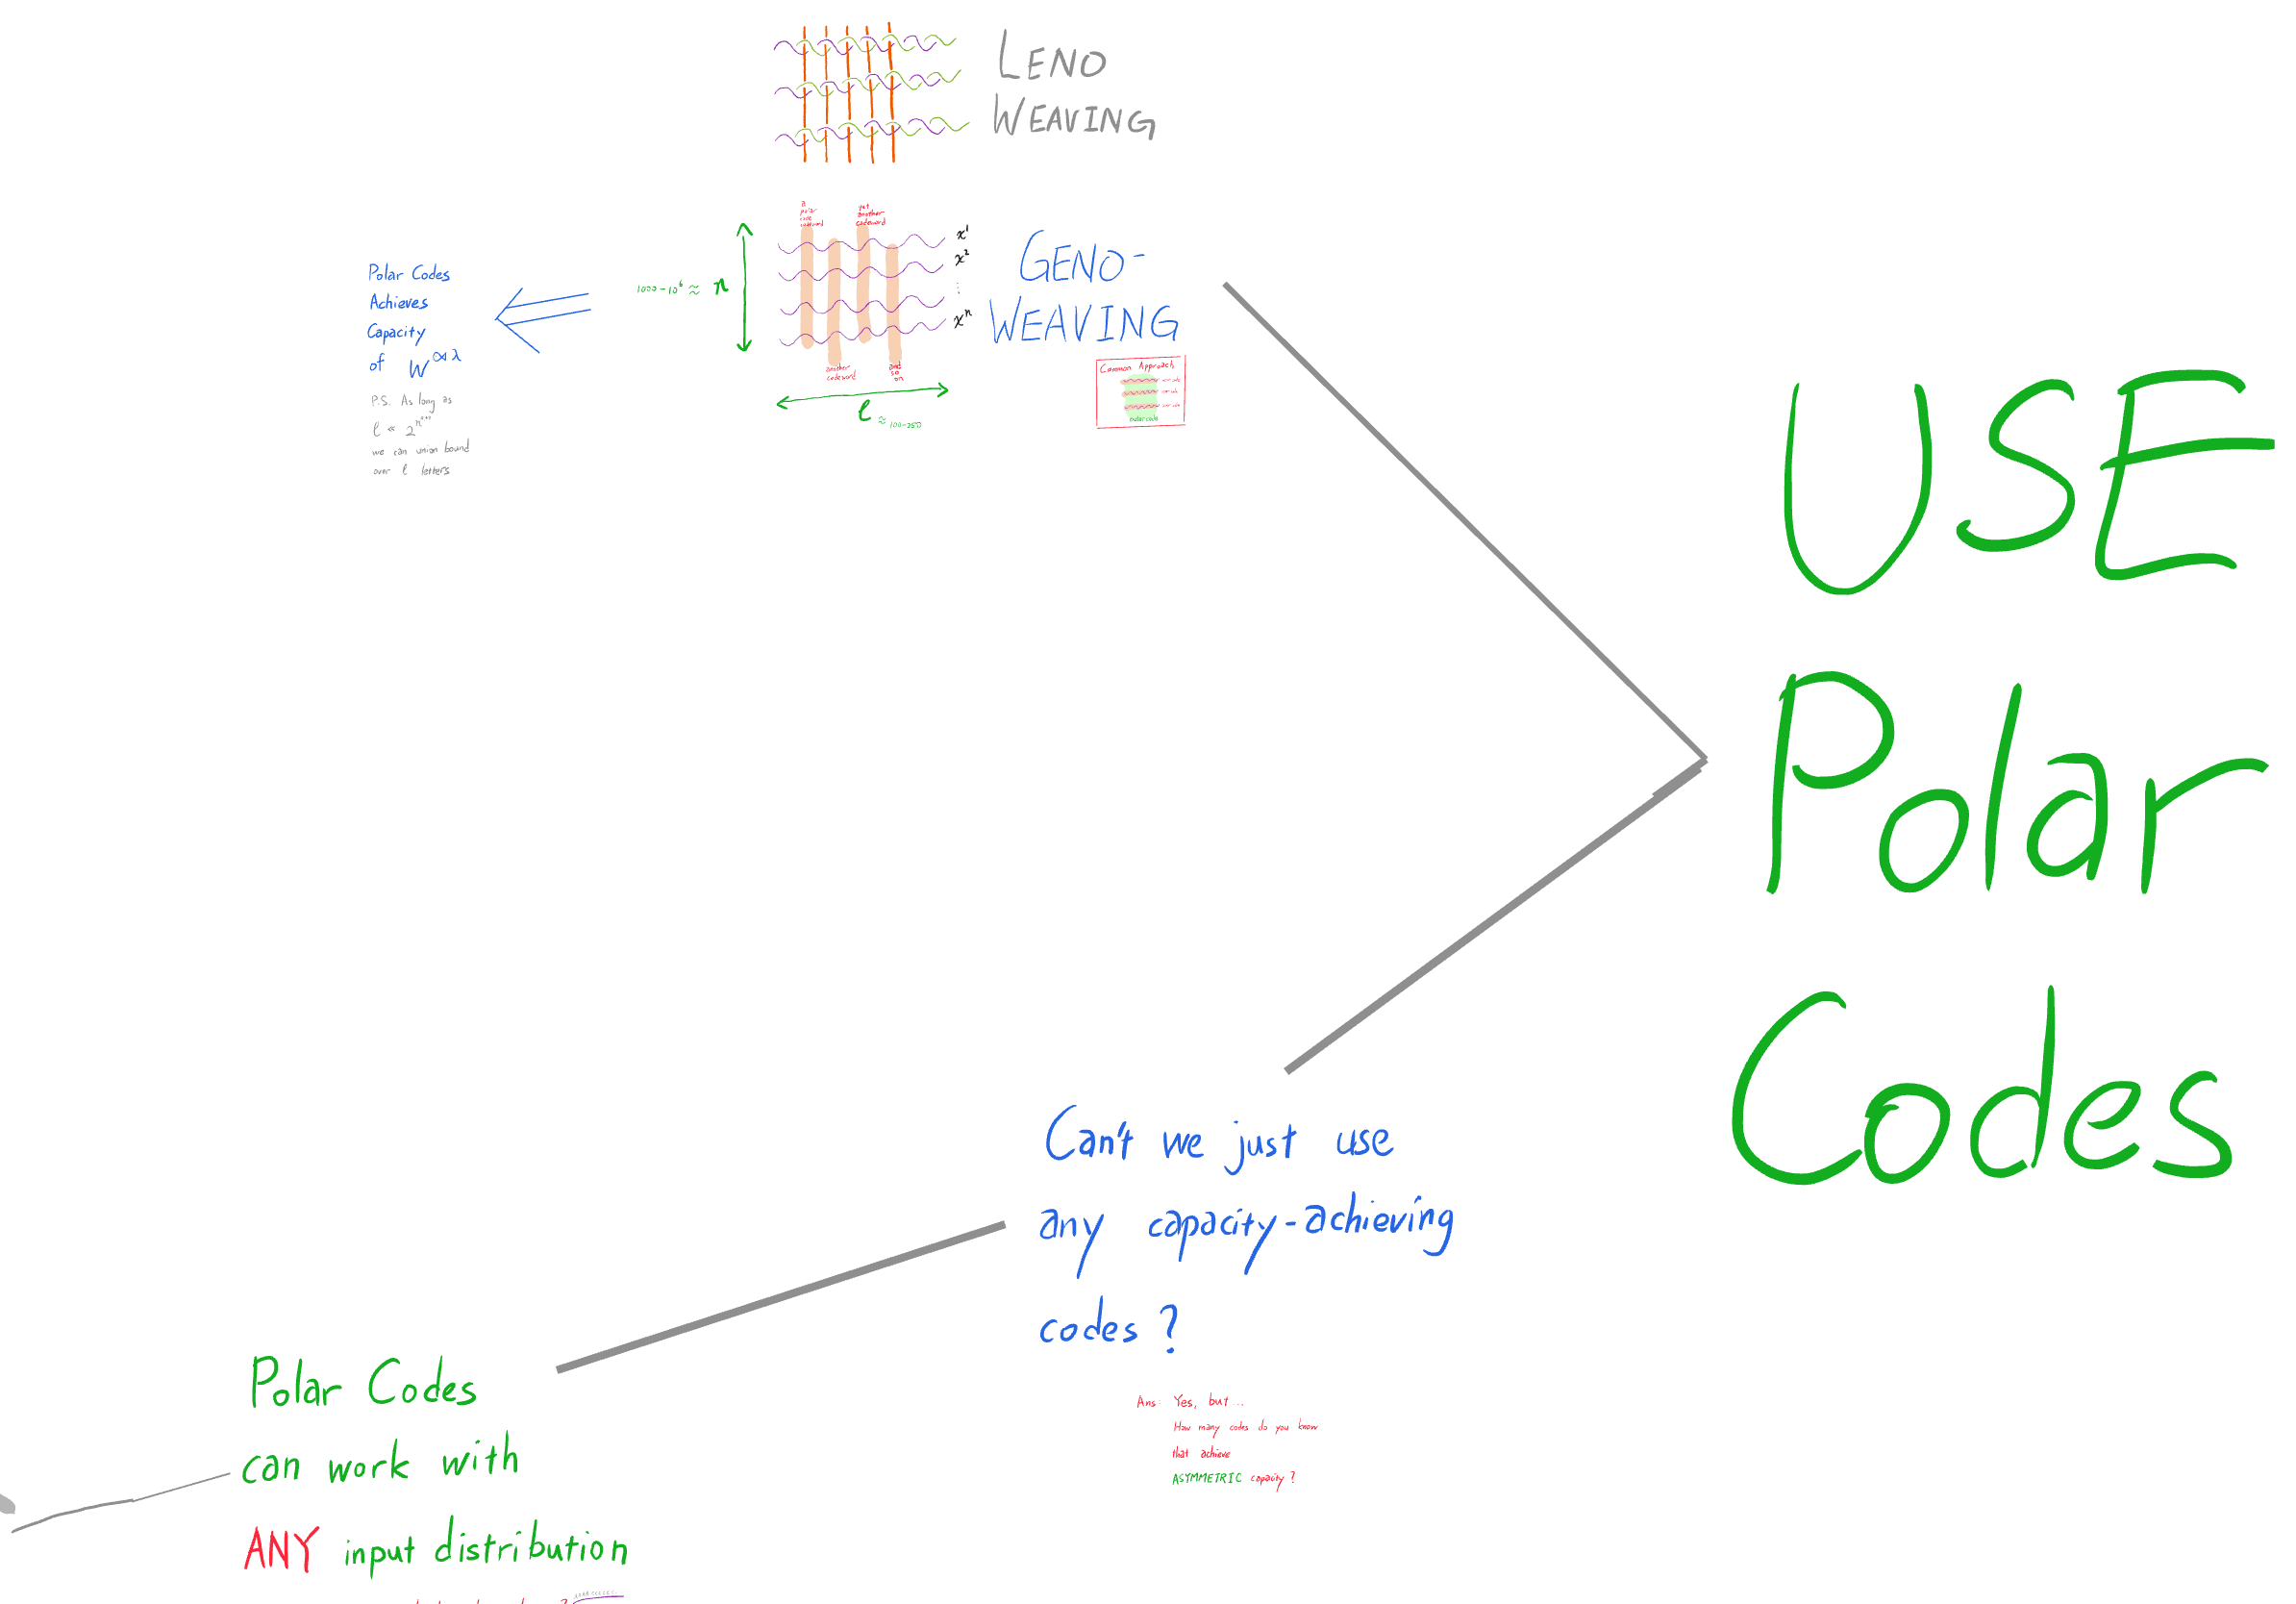 LENO
WEAVING
a
polar
code
codeword
yet
another
codeword
x¹
x²
⋮
xⁿ
GENO-
WEAVING
1000-10⁶ ≈ n
another
codeword
and
so
on
ℓ ≈ 100-250
Common Approach
outer code
Polar Codes
Achieves
Capacity
of W^∝λ
P.S. As long as
ℓ ≪ 2^n^...
we can union bound
over ℓ letters
USE
Polar
Codes
Can't we just use
any capacity-achieving
codes?
Ans: Yes, but...
How many codes do you know
that achieve
ASYMMETRIC capacity?
Polar Codes
can work with
ANY input distribution